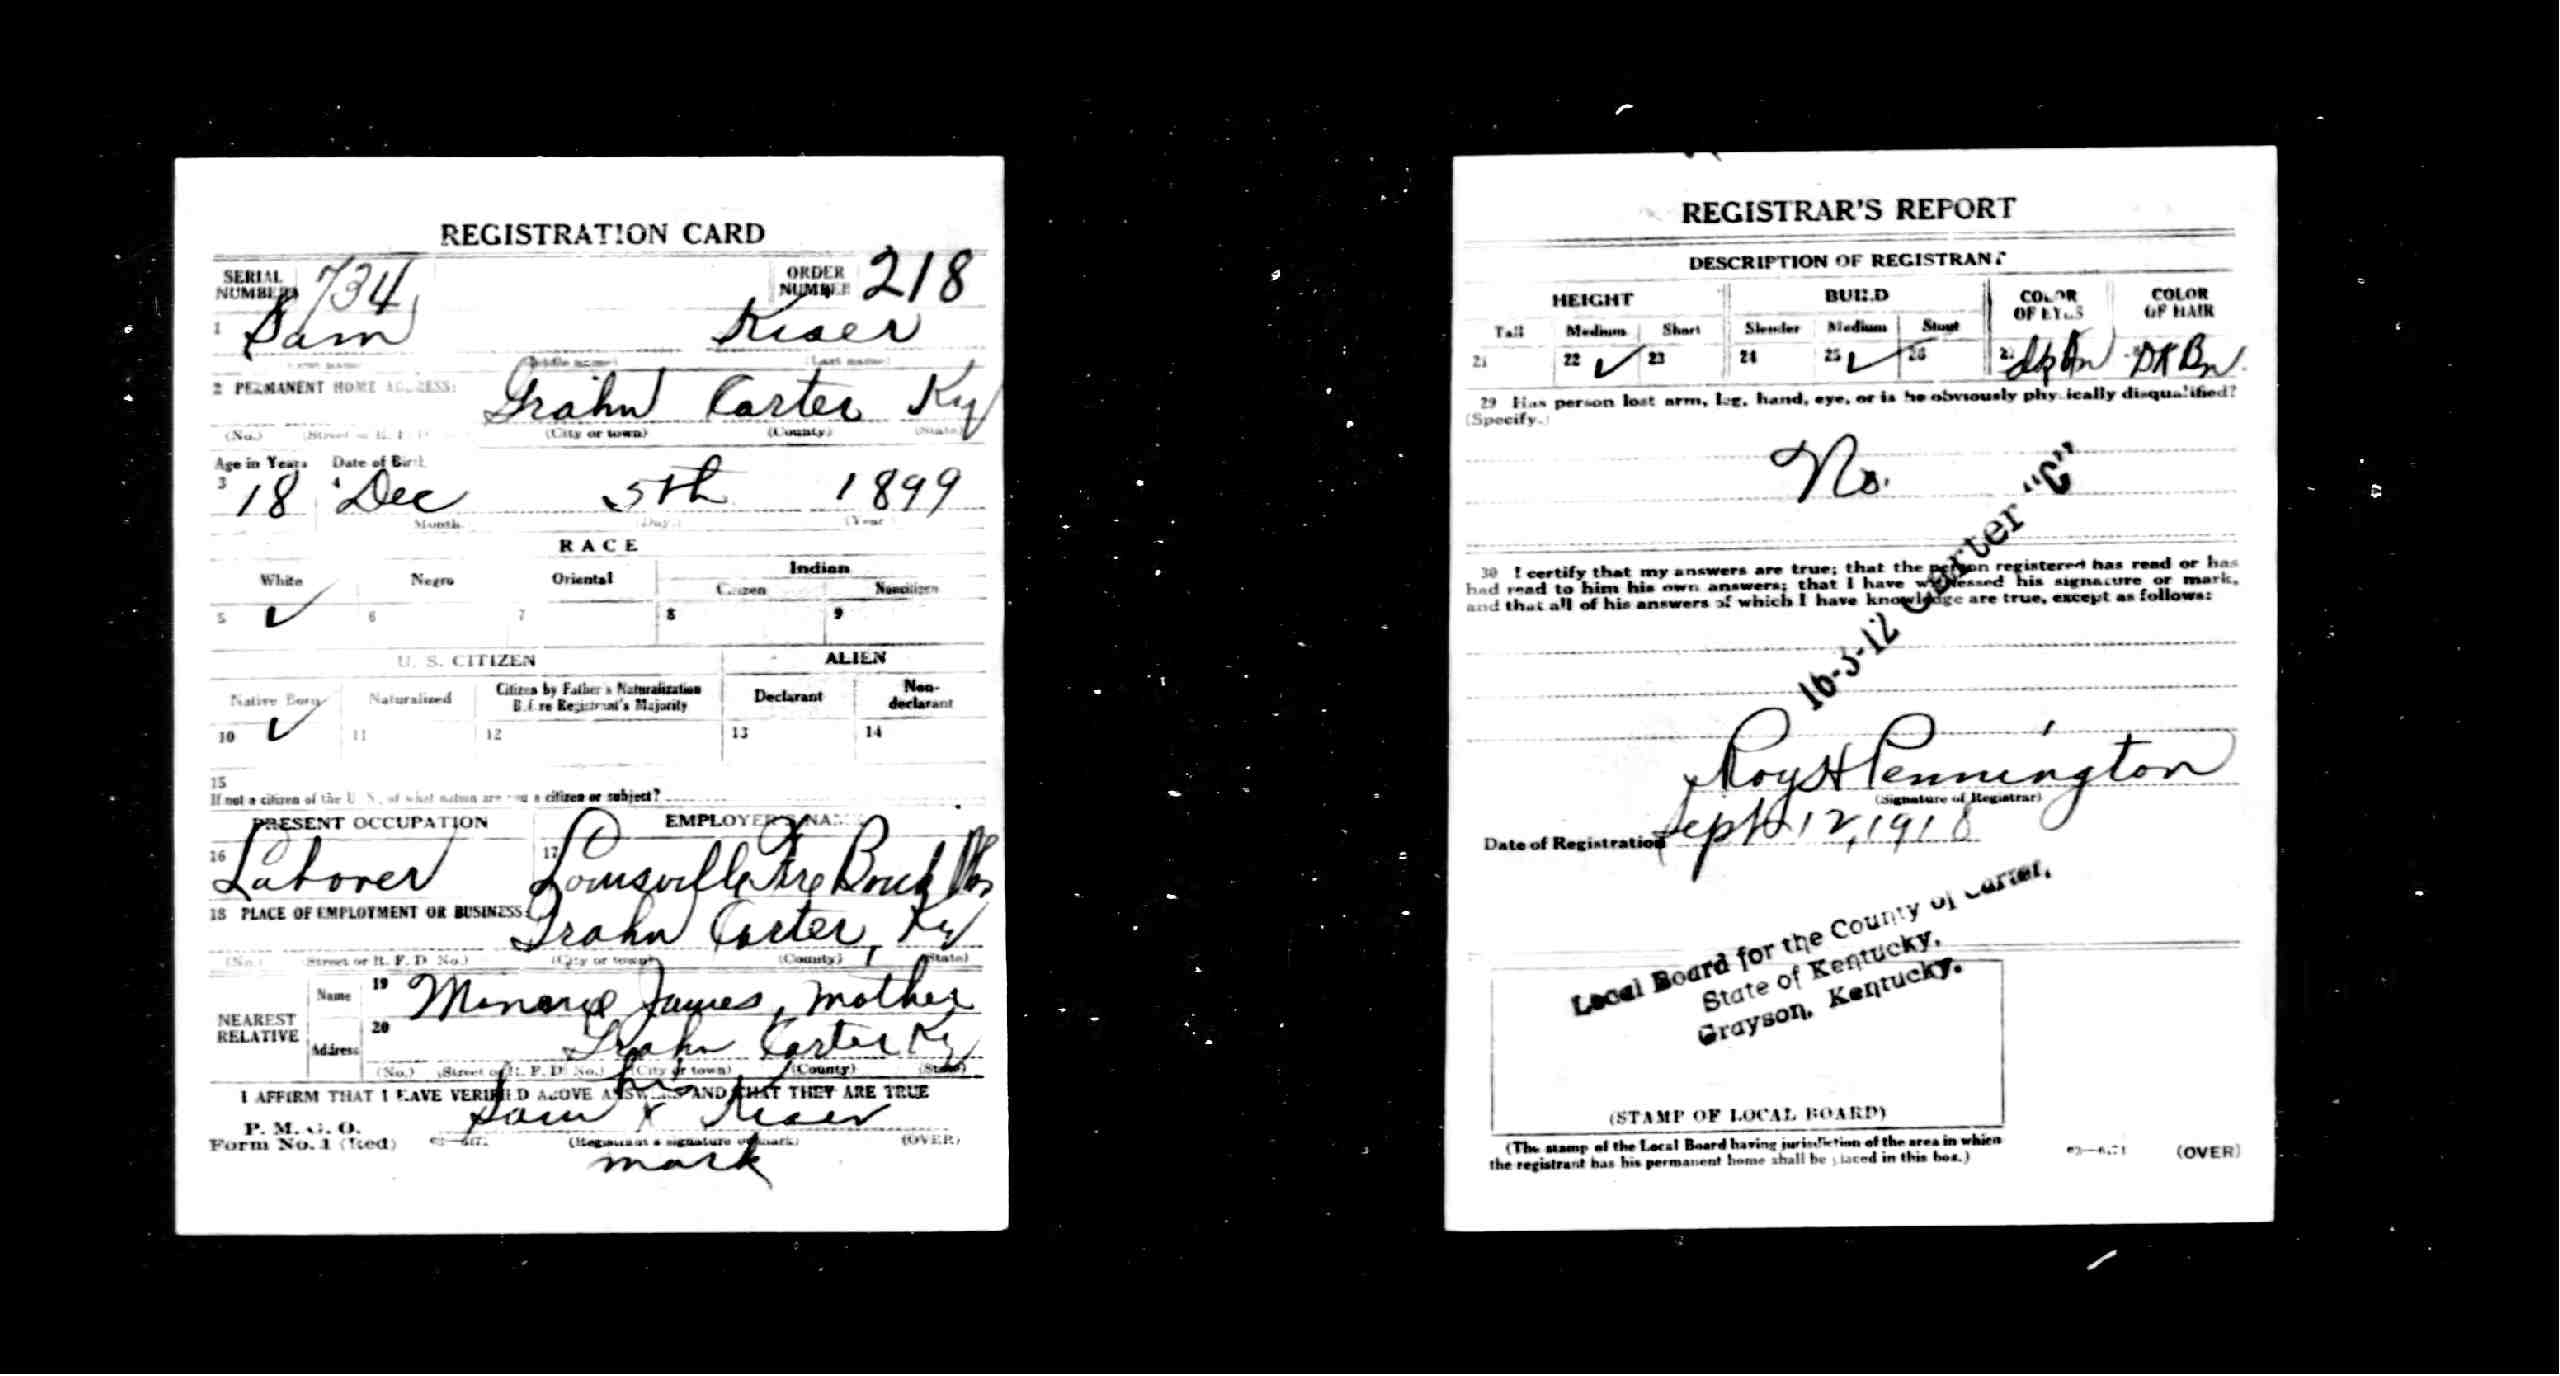 REGISTRATION CARD
SERIAL NUMBER 734 ORDER NUMBER 218
1 Sam Kiser
(Middle name) (Last name)
2 PERMANENT HOME ADDRESS:
Grahn Carter Ky
(No.) (Street or R. F. D. (City or town) (County) (State)
Age in Years Date of Birth
3 18 4 Dec 5th 1899
Month. (Day.) (Year
RACE
White Negro Oriental Indian
Citizen Noncitizen
5 ✓ 6 7 8 9
U. S. CITIZEN ALIEN
Native Born Naturalized Citizen by Father's Naturalization Before Registrant's Majority Declarant Non-declarant
10 ✓ 11 12 13 14
15
If not a citizen of the U. S., of what nation are you a citizen or subject?
PRESENT OCCUPATION EMPLOYER'S NAME
16 Laborer 17 Louisville Fire Brick
18 PLACE OF EMPLOYMENT OR BUSINESS:
Grahn Carter, Ky
(No.) (Street or R. F. D. No.) (City or town) (County) (State)
NEAREST RELATIVE
Name 19 James, mother
Address 20 Grahn Carter Ky
(No.) (Street or R. F. D. No.) (City or town) (County) (State)
I AFFIRM THAT I HAVE VERIFIED ABOVE ANSWERS AND THAT THEY ARE TRUE
his
Sam x Kiser
P. M. G. O.
Form No. 1 (Red) (Registrant's signature or mark) (OVER)
mark
REGISTRAR'S REPORT
DESCRIPTION OF REGISTRANT
HEIGHT BUILD COLOR OF EYES COLOR OF HAIR
Tall Medium Short Slender Medium Stout
21 22 ✓ 23 24 25 ✓ 26 27 dk Bn DK Bn
29 Has person lost arm, leg, hand, eye, or is he obviously physically disqualified?
(Specify.)
No.
16-3-12 Carter "C"
30 I certify that my answers are true; that the person registered has read or has
had read to him his own answers; that I have witnessed his signature or mark,
and that all of his answers of which I have knowledge are true, except as follows:
Roy H Pennington
(Signature of Registrar)
Date of Registration Sept 12, 1918
Local Board for the County of Carter,
State of Kentucky,
Grayson, Kentucky.
(STAMP OF LOCAL BOARD)
(The stamp of the Local Board having jurisdiction of the area in which
the registrant has his permanent home shall be placed in this box.)
(OVER)